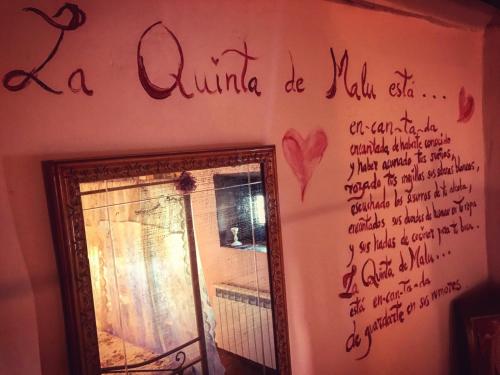 La Quinta de Malu está...
en-can-ta-da
encantada de haberte conocido
y haber acunado tus sueños,
rozado tus mejillas sus sábanas blancas,
escuchado los susurros de tu alcoba,
encantados sus duendes de humear en tu ropa
y sus hadas de cocinar para ti bien.
La Quinta de Malu...
está en-can-ta-da
de guardarte en sus rumores.